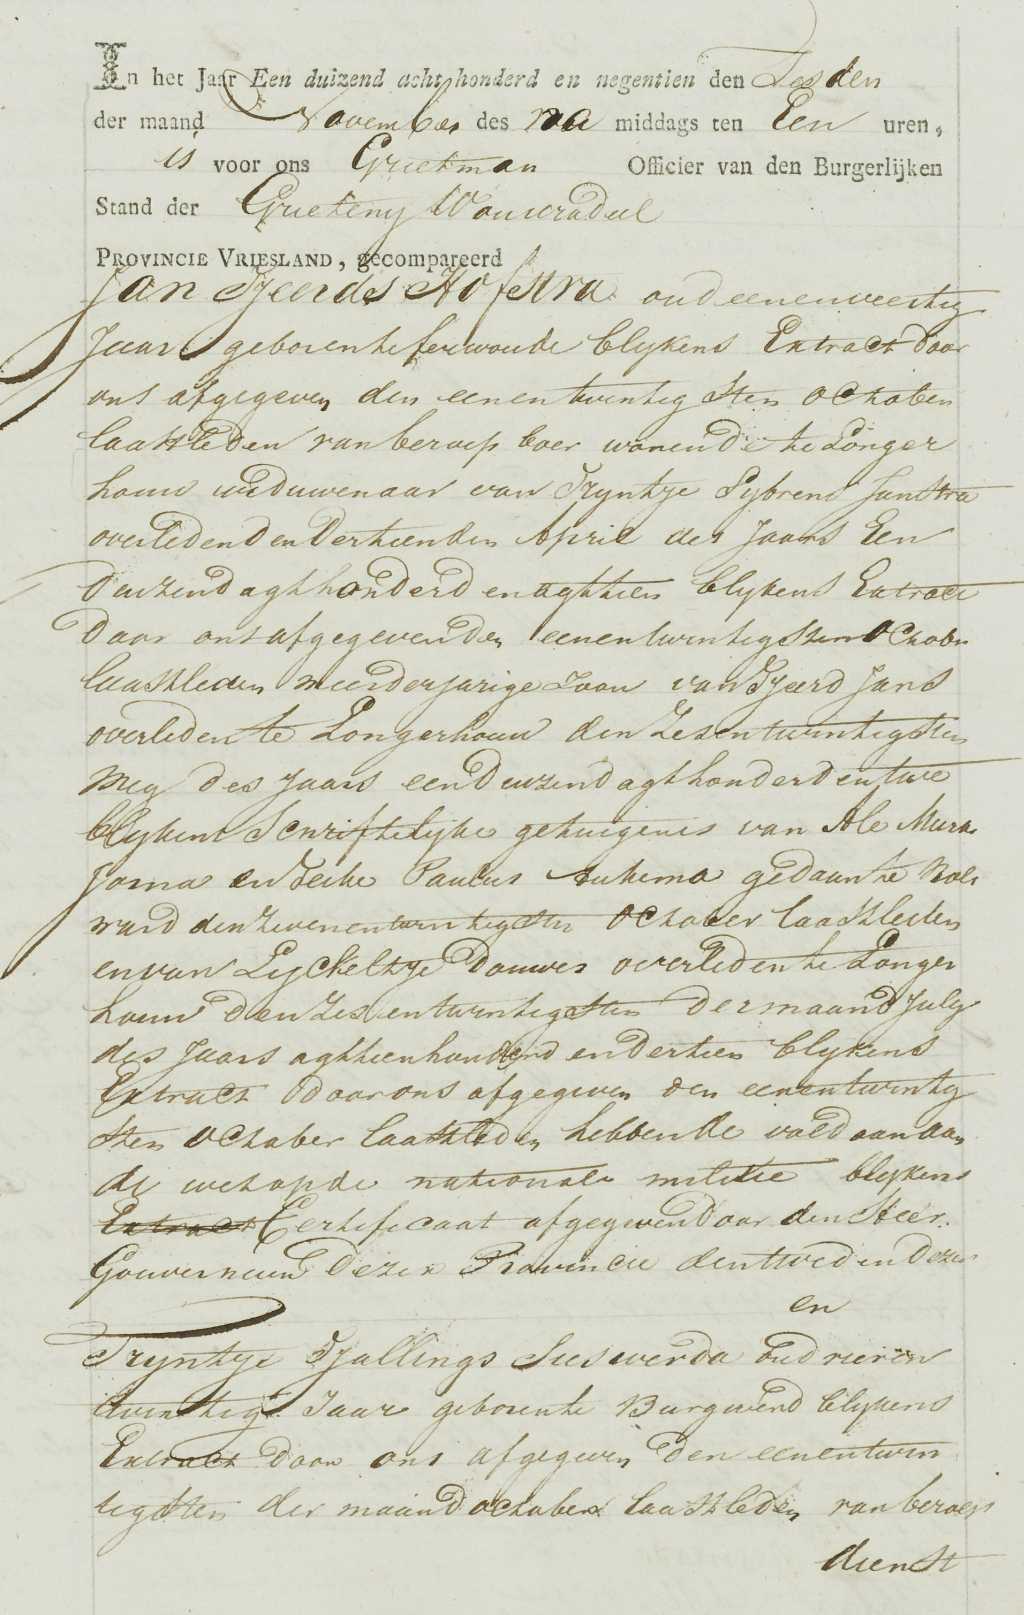 In het Jaar Een duizend acht honderd en negentien den Zesden
der maand November des na middags ten Een uren,
is voor ons Grietman Officier van den Burgerlijken
Stand der Grieteny Wonseradeel
PROVINCIE VRIESLAND, gecompareerd
Jan Tjeerds Hofstra oud eenenveertig
Jaar geboren te ferwoude blykens Extract door
ons afgegeven den eenentwintigsten October
laatstleden van beroep boer wonende te Longer
houw weduwenaar van Tryntje Sybrens
overleden den dertienden April des Jaars Een
duizend aghthonderd en aghtien blykens Extract
door ons afgegeven den eenentwintigsten Octobr
laastleden meerderjarige zoon van Tjeerd Jans
overleden te Longerhouw den zesentwintigsten
Mey des Jaars eenduizend aghthonderd en twe
blykens Schriftelijke getuigenis van Ale Mura
Joma en Feike Paulus gedaan te Bols
ward den zevenentwintigsten October laatstleden
en van Lyckeltje Douwes overleden te Longer
houw den zesentwintigsten der maand July
des Jaars aghtienhonderd en dertien blykens
Extract door ons afgegeven den eenentwintig
sten October laatstleden hebbende voldaan aan
de wet op de nationale militie blykens
Extract Certificaat afgegeven door den Heer
Gouverneur dezer Provincie den tweden dezer
en
Tryntje Tjallings Sieswerda oud vieren
twintig Jaar geboren te Burgwerd blykens
Extract door ons afgegeven den eenentwin
tigsten der maand october laatstleden van beroep
dienst